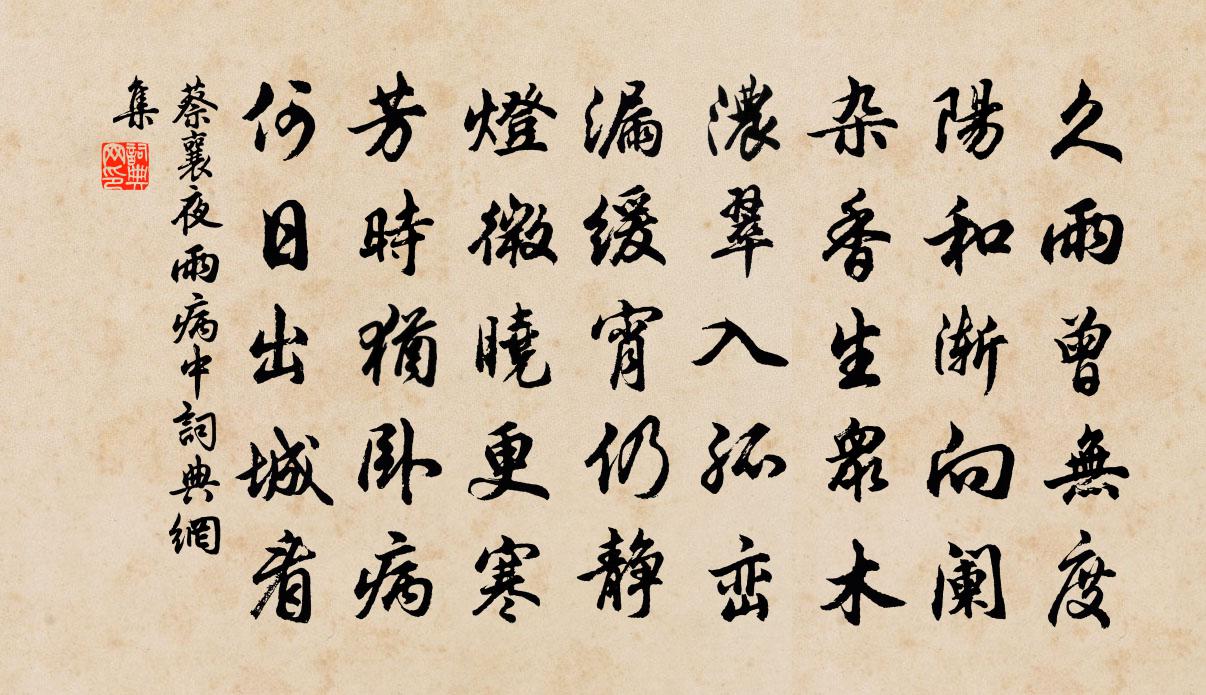 久雨曾無度
陽和漸向阑
杂香生眾木
濃翠入孤峦
漏缓宵仍静
燈微曉更寒
芳時猶卧病
何日出城看
蔡襄夜雨病中詞典網
集
詞典
网印